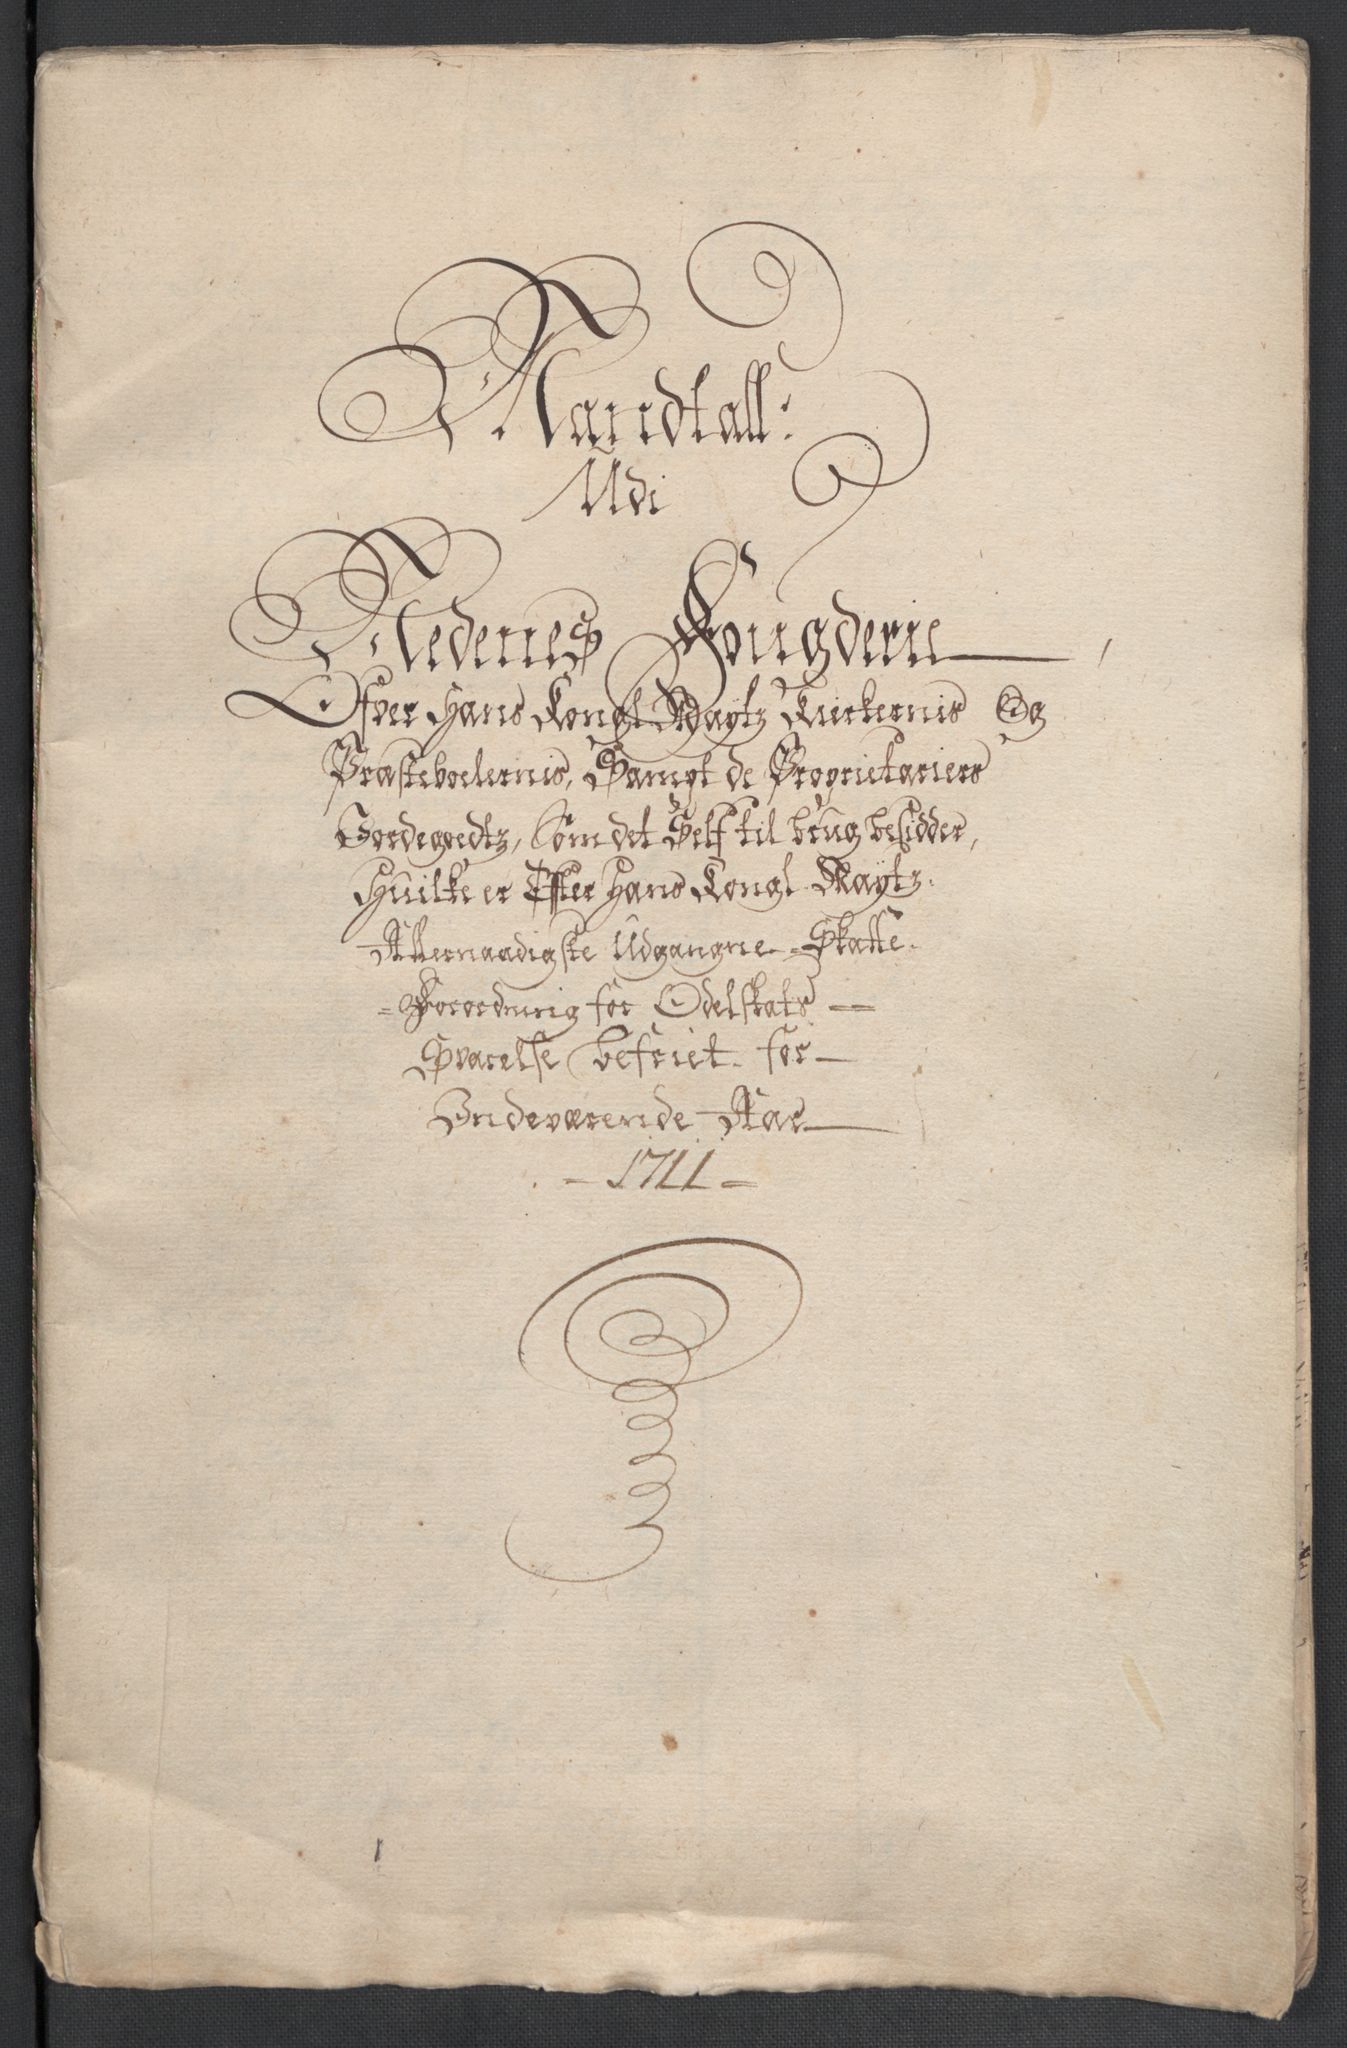 Mandtall:
Udi
Nedenes Fougderie
Ofver Hans Kongl Maytz Kirckernis Og
Præsteboelernis, Sampt de Proprietariers
Jordegoedtz, Som det Self til brug besidder,
Huilke er Efter Hans Kongl. Maytz.
Allernaadigste Udgangne Skatte-
-Forordning for Odelskats
Svarelse befriet. for
Indeværende Aar
- 1711 -